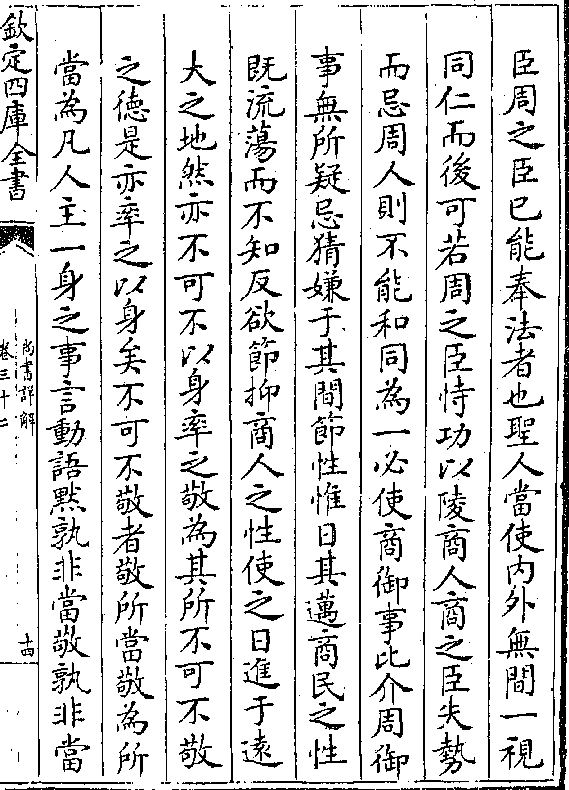 臣周之臣已能奉法者也聖人當使内外無間一視
同仁而後可若周之臣恃功以陵商人商之臣失勢
而忌周人則不能和同為一必使商御事比介周御
事無所疑忌猜嫌于其間節性惟日其邁商民之性
既流蕩而不知反欲節抑商人之性使之日進于遠
大之地然亦不可不以身率之敬為其所不可不敬
之徳是亦率之以身矣不可不敬者敬所當敬為所
當為凡人主一身之事言動語黙孰非當敬孰非當
欽定四庫全書
尚書詳解
卷三十二
十四